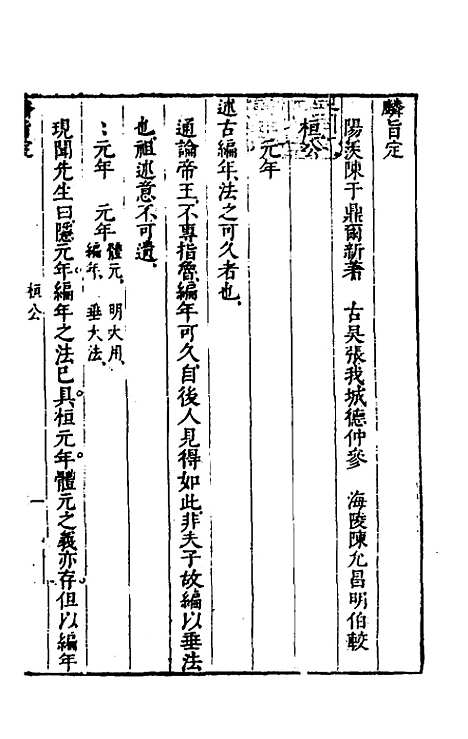 麟旨定
陽羨陳于鼎爾新著　古吳張我城德仲參　海陵陳允昌明伯較
桓公
元年
述古編年法之可久者也
通論帝王不專指魯編年可久自後人見得如此非夫子故編以垂法
也祖述意不可遺
元年　元年　體元　明大用
編年　垂大法
現聞先生曰隱元年編年之法已具桓元年體元之義亦存但以編年
桓公
一